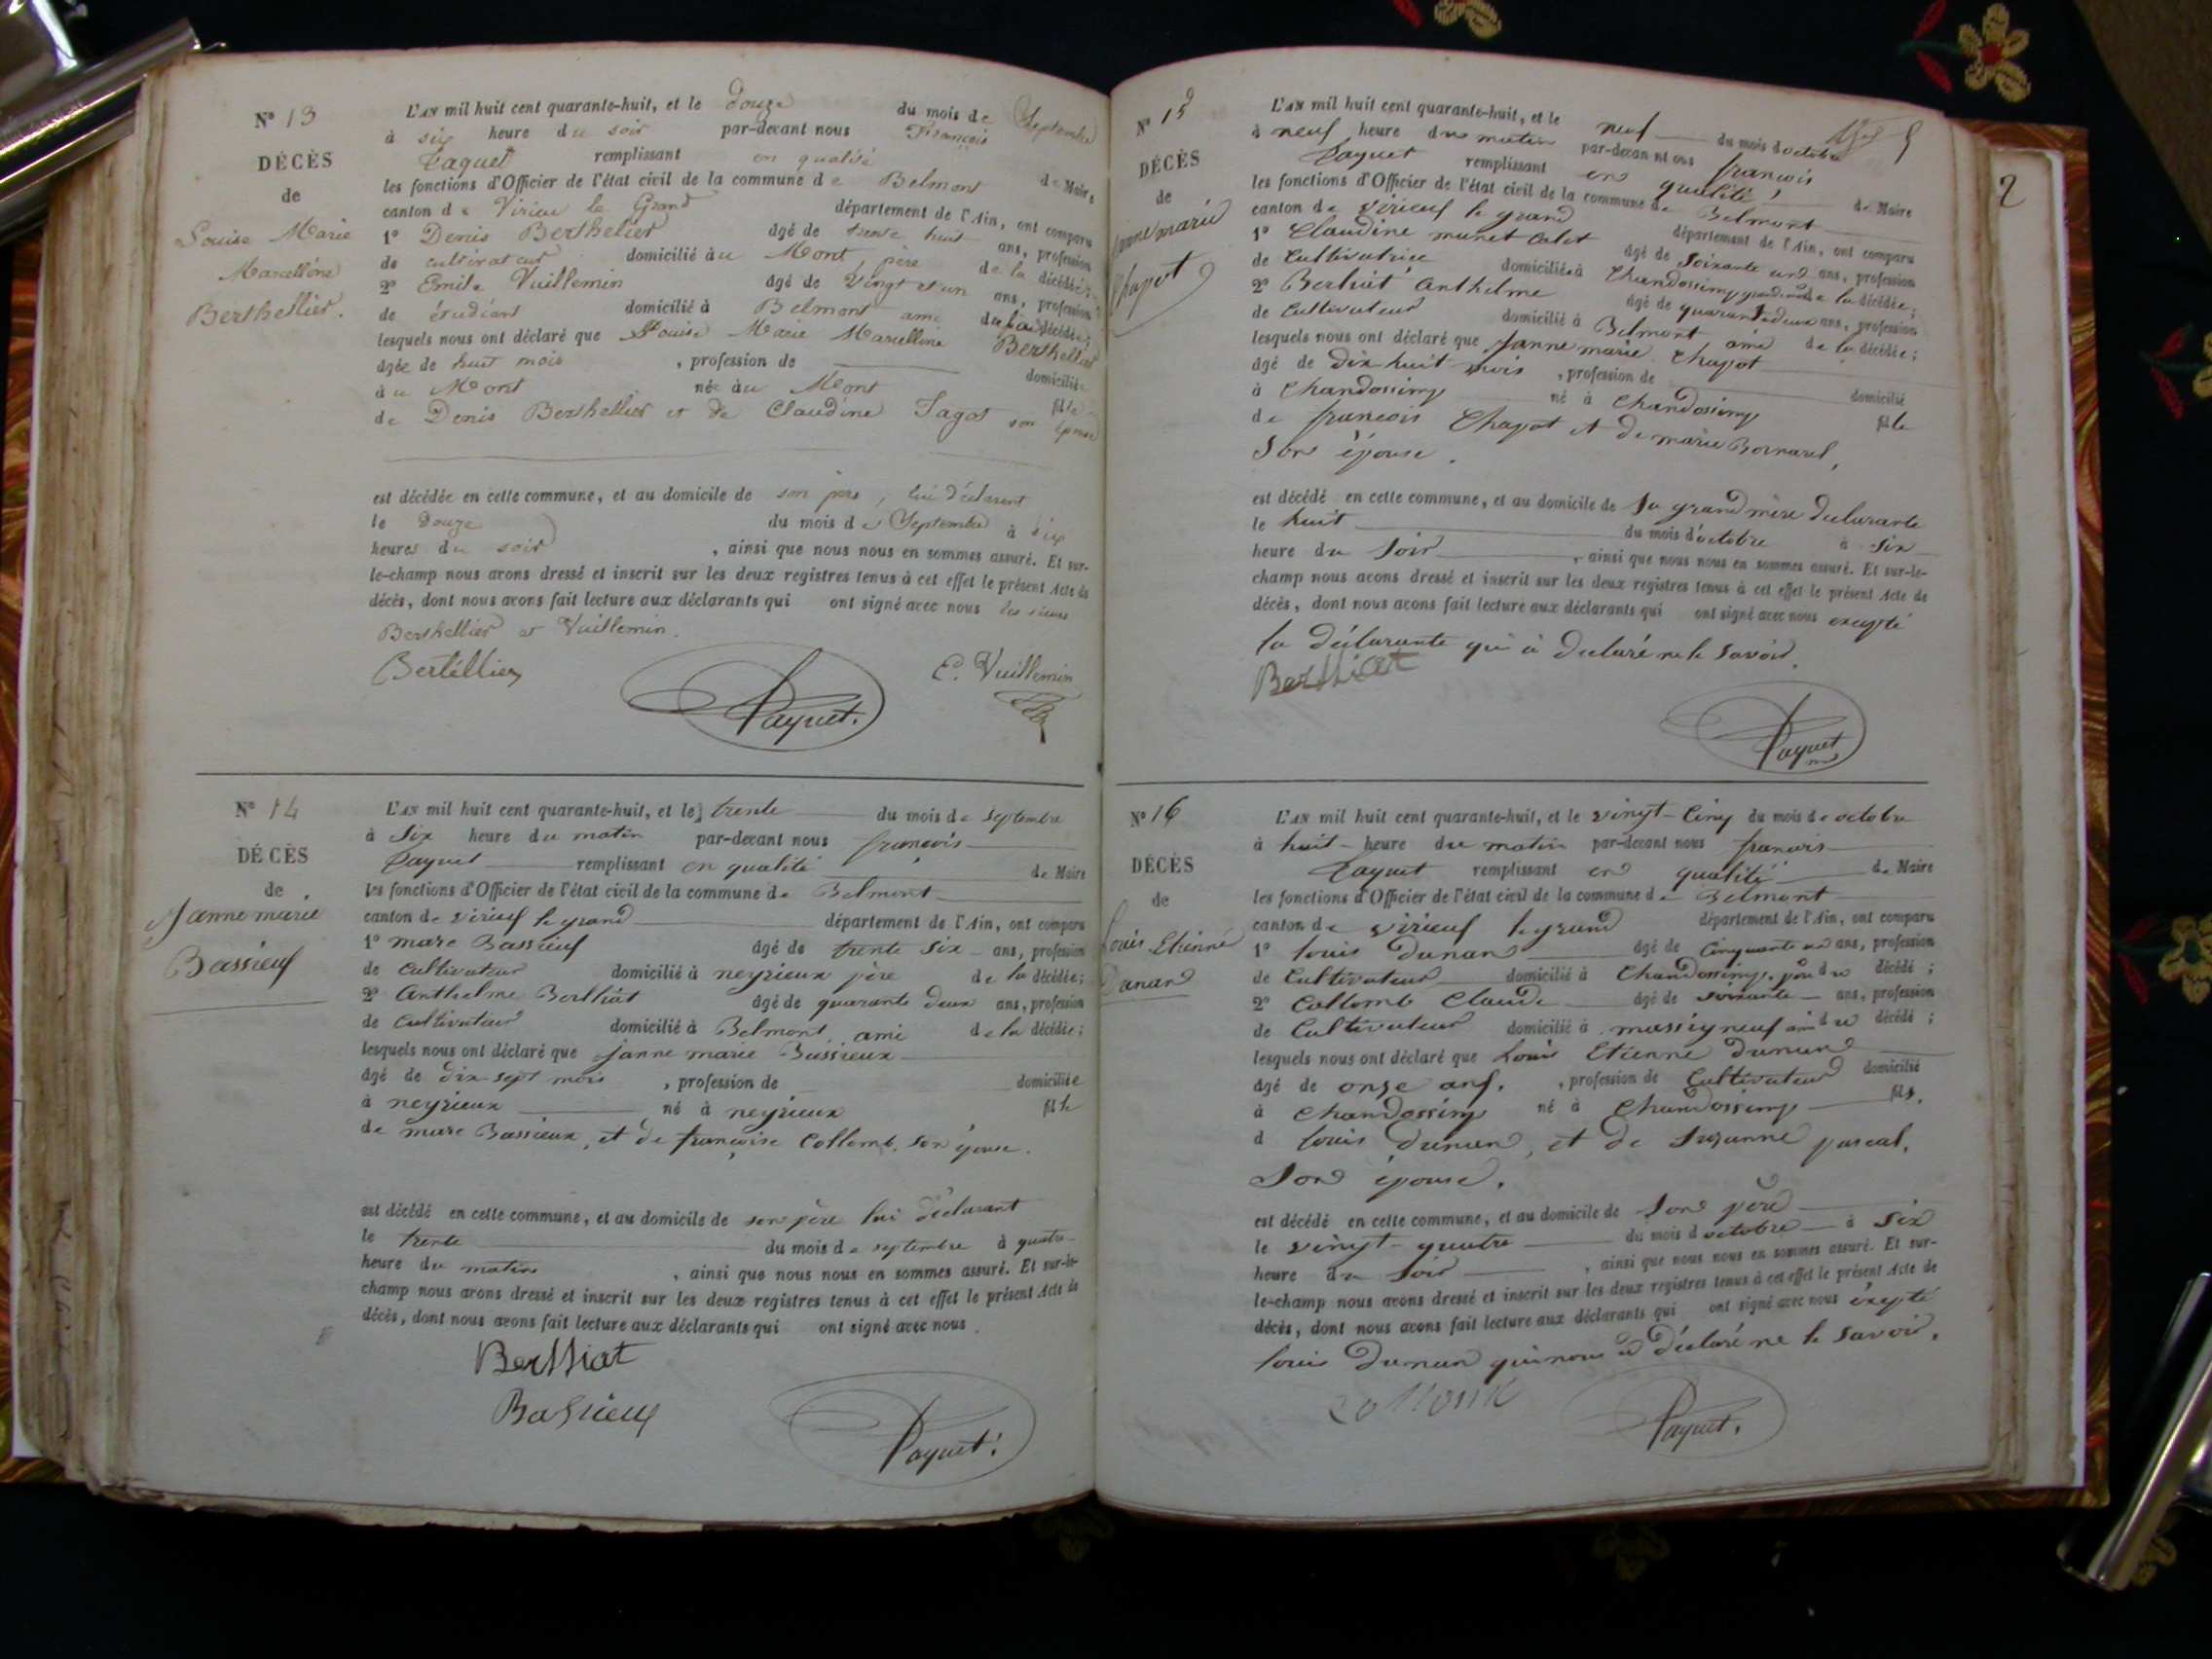 N° 13
DÉCÈS
de
Louise Marie
Marcelline
Berthellier.
L'AN mil huit cent quarante-huit, et le douze du mois de Septembre
à six heure du soir par-devant nous François
Paquet remplissant en qualité de Maire
les fonctions d'Officier de l'état civil de la commune de Belmont
canton de Virieu le Grand département de l'Ain, ont comparu
1° Denis Berthelier âgé de trente huit ans, profession
de cultivateur domicilié au Mont, père de la décédée;
2° Emile Vuillemin âgé de vingt et un ans, profession
de étudiant domicilié à Belmont ami de la décédée;
lesquels nous ont déclaré que Louise Marie Marcelline Berthellier
âgée de huit mois, profession de domiciliée
au Mont née au Mont fille
de Denis Berthellier et de Claudine Jagot son épouse
est décédée en cette commune, et au domicile de son père, lui déclarant
le douze du mois de Septembre à six
heures du soir, ainsi que nous nous en sommes assuré. Et sur-
le-champ nous avons dressé et inscrit sur les deux registres tenus à cet effet le présent Acte de
décès, dont nous avons fait lecture aux déclarants qui ont signé avec nous les sieurs
Berthellier et Vuillemin.
Bertéllier
Paquet.
E. Vuillemin
N° 14
DÉCÈS
de
Janne marie
Bassieuf
L'AN mil huit cent quarante-huit, et le trente du mois de septembre
à Six heure du matin par-devant nous françois
Paquet remplissant en qualité de Maire
les fonctions d'Officier de l'état civil de la commune de Belmont
canton de virieuf le grand département de l'Ain, ont comparu
1° marc Bassieuf âgé de trente Six ans, profession
de Cultivateur domicilié à neyrieux père de la décédée;
2° Anthelme Berthiat âgé de quarante deux ans, profession
de Cultivateur domicilié à Belmont, ami de la décédée;
lesquels nous ont déclaré que janne marie Bassieux
âgé de dix-sept mois, profession de domiciliée
à neyrieux né à neyrieux fille
de marc Bassieux, et de françoise Collomb, son épouse.
est décédé en cette commune, et au domicile de son père lui déclarant
le trente du mois de septembre à quatre
heure du matin, ainsi que nous nous en sommes assuré. Et sur-le-
champ nous avons dressé et inscrit sur les deux registres tenus à cet effet le présent Acte de
décès, dont nous avons fait lecture aux déclarants qui ont signé avec nous.
Berthiat
Bassieux
Paquet.
N° 15
DÉCÈS
de
janne marie
Chapot
2
L'AN mil huit cent quarante-huit, et le neuf du mois d'octobre
à neuf heure du matin par-devant nous françois
Paquet remplissant en qualité de Maire
les fonctions d'Officier de l'état civil de la commune de Belmont
canton de virieuf le grand département de l'Ain, ont comparu
1° Claudine munet Calet âgé de Soixante ans, profession
de Cultivatrice domiciliée à Chandossimy grandmère de la décédée;
2° Berthiat Anthelme âgé de quarante deux ans, profession
de Cultivateur domicilié à Belmont, ami de la décédée;
lesquels nous ont déclaré que janne marie Chapot
âgé de Dix huit mois, profession de domicilié
à Chandossimy né à Chandossimy fille
de françois Chapot et de marie Bornarel,
Son épouse.
est décédé en cette commune, et au domicile de Sa grand mère déclarante
le huit du mois d'octobre à Six
heure du Soir, ainsi que nous nous en sommes assuré. Et sur-le-
champ nous avons dressé et inscrit sur les deux registres tenus à cet effet le présent Acte de
décès, dont nous avons fait lecture aux déclarants qui ont signé avec nous excepté
la déclarante qui à déclaré ne le Savoir.
Berthiat
Paquet
N° 16
DÉCÈS
de
Louis Etienne
Dunan
L'AN mil huit cent quarante-huit, et le vingt-Cinq du mois de octobre
à huit heure du matin par-devant nous francois
Paquet remplissant en qualité de Maire
les fonctions d'Officier de l'état civil de la commune de Belmont
canton de virieuf le grand département de l'Ain, ont comparu
1° louis Dunan âgé de Cinquante ans, profession
de Cultivateur domicilié à Chandossimy, père du décédé;
2° Collomb Claude âgé de Soixante ans, profession
de Cultivateur domicilié à massigneuf ami du décédé;
lesquels nous ont déclaré que Louis Etienne Dunan
âgé de onze ans, profession de Cultivateur domicilié
à Chandossimy né à Chandossimy fils
d louis Dunan, et de Suzanne pascal,
Son épouse.
est décédé en cette commune, et au domicile de Son père
le vingt-quatre du mois d'octobre à Six
heure du Soir, ainsi que nous nous en sommes assuré. Et sur-
le-champ nous avons dressé et inscrit sur les deux registres tenus à cet effet le présent Acte de
décès, dont nous avons fait lecture aux déclarants qui ont signé avec nous éxcepté
louis Dunan qui nous à déclaré ne le Savoir.
Collomb
Paquet.